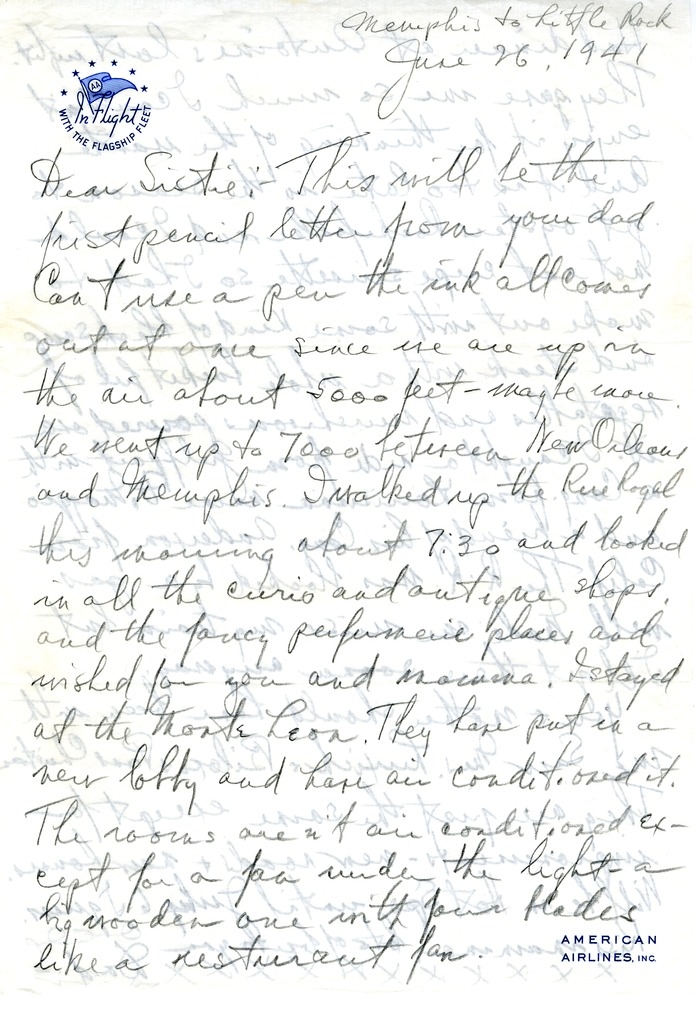 Memphis to Little Rock
June 26, 1941
AA
In Flight
WITH THE FLAGSHIP FLEET
Dear Sistie:- This will be the
first pencil letter from your dad.
Can't use a pen the ink all comes
out at once since we are up in
the air about 5000 feet - maybe more.
We went up to 7000 between New Orleans
and Memphis. I walked up the Rue Royal
this morning about 7:30 and looked
in all the curio and antique shops.
and the fancy perfumerie places and
wished for you and momma. I stayed
at the Monte Leon. They have put in a
new lobby and have air conditioned it.
The rooms aren't air conditioned ex-
cept for a fan under the light - a
big wooden one with four blades
like a resturant fan.
AMERICAN
AIRLINES, INC.